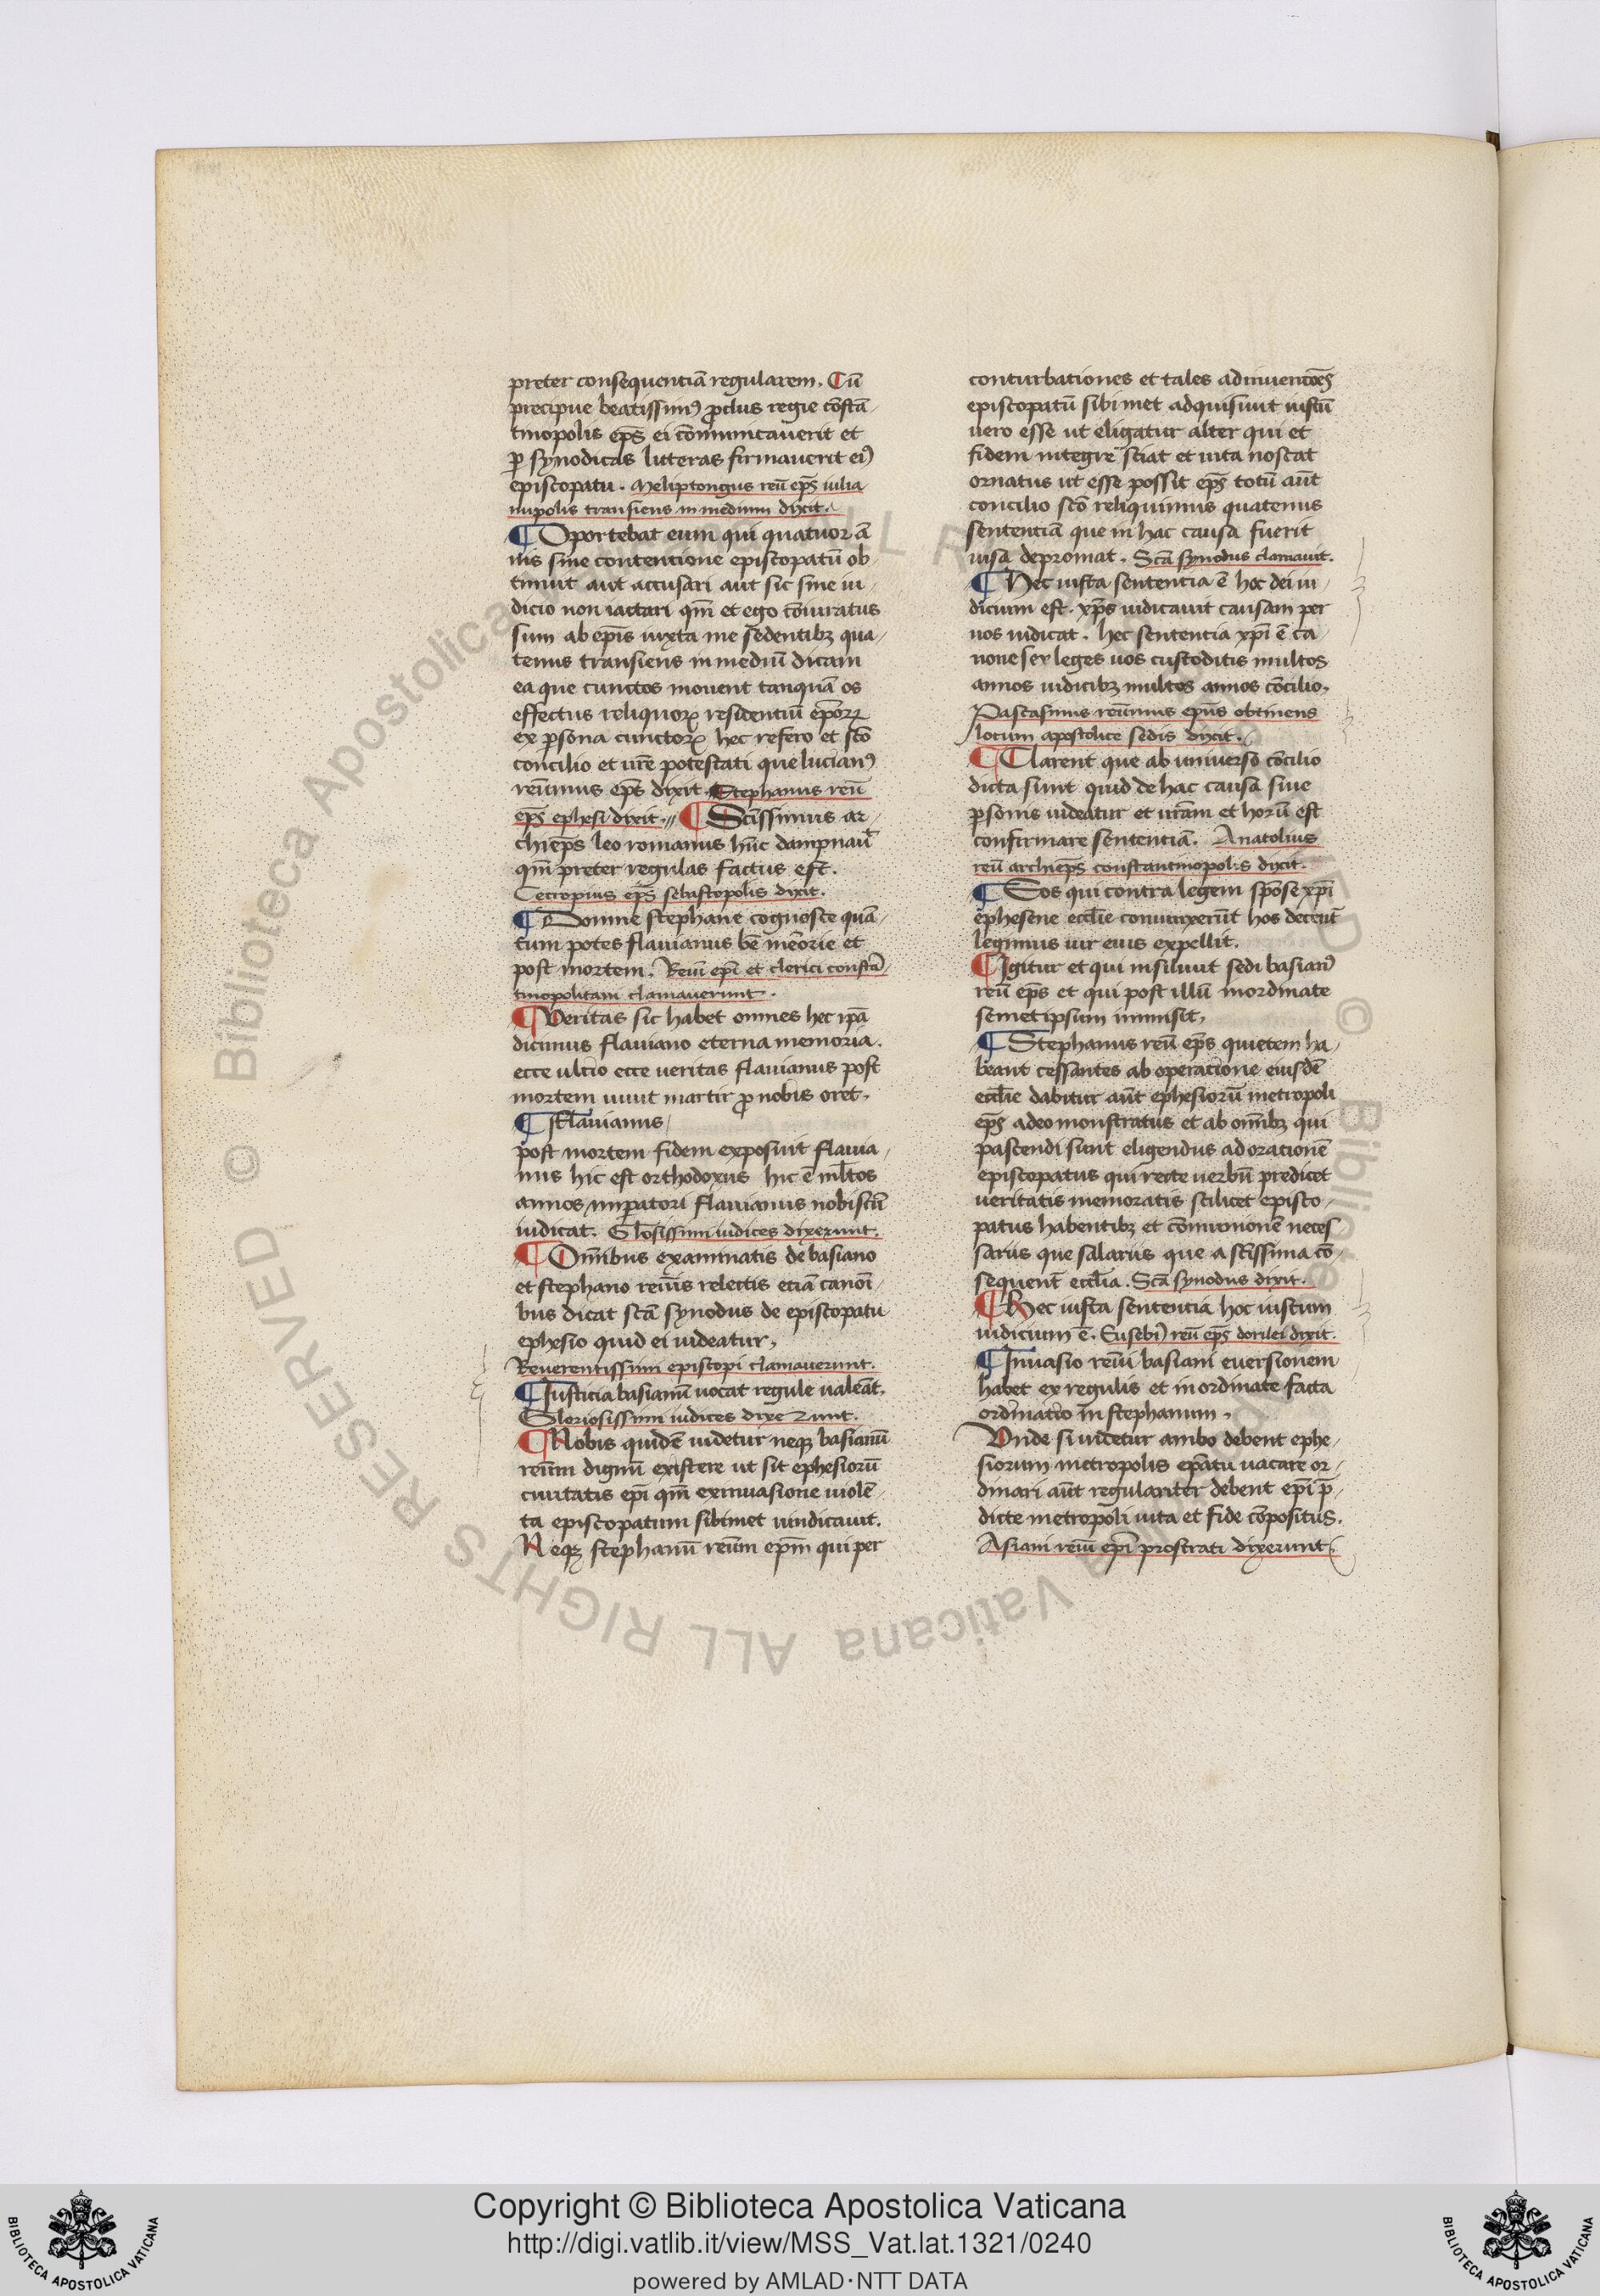 preter consequentiā regularem. Cū
precipue beatissimꝰ ꝓclus regie cōstā-
tinopolis ep̄s ei cōmunicauerit et
ꝑ synodicas litteras firmauerit eiꝰ
episcopatū. Meliptongus reū ep̄s iulia
nupolis transiens in medium dixit.
¶ Oportebat eum qui quatuor ā
nis sine contentione episcopatū ob
tinuit aut accusari aut sic sine iu-
dicio non iactari qm̄ et ego cōiuratus
sum ab ep̄is iuxta me sedentibꝫ qua-
tenus transiens in mediū dicam
ea que cunctos mouent tanquā os
effectus reliquoꝝ residentiū ep̄oꝝ
ex ꝑsona cunctoꝝ hec refero et sc̄o
concilio et ur̄e potestati que lucianꝰ
reūmus ep̄s dixit. Stephanus reū
ep̄s ephesi dixit. ¶ Sc̄issimus ar-
chiep̄s leo romanus hūc dampnau͛
qm̄ preter regulas factus est.
Cecropius ep̄s sebastopolis dixit.
¶ Domne stephane cognosce quā-
tum potes flauianus bē mēorie et
post mortem. Reūi ep̄i et clerici constā-
tinopolitani clamauerunt.
¶ Veritas sic habet omnes hec ip̄a
dicimus flauiano eterna memoria.
ecce ultio ecce ueritas flauianus post
mortem uiuit martir ꝓ nobis oret.
¶ Flauianus
post mortem fidem exposuit flauia-
nus hic est orthodoxus hic ē ml̄tos
annos imꝑatori flauianus nobiscū
iudicat. Glōsissimi iudices dixerunt.
¶ Omnibus examinatis de basiano
et stephano reūis relectis etiā canoī-
bus dicat sc̄a synodus de episcopatu
ephesio quid ei uideatur,
Reuerentissimi episcopi clamauerunt.
¶ Iusticia basianū uocat regule ualeāt.
Gloriosissimi iudices dixerunt.
¶ Nobis quidē uidetur neqꝫ basianū
reūm dignū existere ut sit ephesiorū
ciuitatis ep̄i qm̄ ex inuasione uiolē-
ta episcopatum sibimet uindicauit.
Neqꝫ stephanū reūm ep̄m qui per
conturbationes et tales adinuencōes
episcopatū sibimet adquisiuit iustū
uero esse ut eligatur alter qui et
fidem integre sciat et uita noscat
ornatus ut esse possit ep̄s totū aūt
concilio sc̄o reliquimus quatenus
sententiā que in hac causa fuerit
uisa depromat. Sc̄a synodus clamauit.
¶ Hec iusta sentencia ē hoc dei iu-
dicium est. xp̄s iudicauit causam per
uos iudicat. hec sententia xp̄i ē ca-
nones leges uos custoditis multos
annos iudicibꝫ multos annos cōcilio,
Pascasinus reūmus ep̄us obtinens
locum apostolice sedis dixit.
¶ Clarent que ab uniuerso cōcilio
dicta sunt quid de hac causa siue
ꝑsonis uideatur et ur̄am et horū est
confirmare sententiā. Anatolius
reū archiep̄s constantinopolis dixit.
¶ Eos qui contra legem sponse xp̄i
ephesene eccl̄ie coniunxerūt hos decent͛
legimus uir eius expellit.
¶ Igitur et qui insiluit sedi basianꝰ
reū ep̄s et qui post illū inordinate
semetipsum inmisit,
¶ Stephanus reū ep̄s quietem ha-
beant cessantes ab operatione eiusdē
eccl̄ie dabitur aūt ephesiorū metropoli
ep̄s adeo monstratus et ab om̄ibꝫ qui
pascendi sunt eligendus ad orationē
episcopatus qui recte uerbū predicet
ueritatis memoratis scilicet episco-
patus habentibꝫ et cōmunionē neces
sariis que salariis que a sc̄issima cō-
sequent͛ eccl̄ia. Sc̄a synodus dixit.
¶ Hec iusta sententia hoc iustum
iudicium ē. Eusebiꝰ reū ep̄s dorilei dixit.
¶ Inuasio reūi basiani euersionem
habet ex regulis et inordinate facta
ordinatio in stephanum,
Vnde si uidetur ambo debent ephe-
siorum metropolis ep̄atu uacare or-
dinari aūt regulariter debent ep̄i p̄-
dicte metropoli uita et fide cōpositus.
Asiani reūi ep̄i prostrati dixerunt.
© Biblioteca Apostolica Vaticana ALL RIGHTS RESERVED
Copyright © Biblioteca Apostolica Vaticana
http://digi.vatlib.it/view/MSS_Vat.lat.1321/0240
powered by AMLAD·NTT DATA
BIBLIOTECA APOSTOLICA VATICANA
BIBLIOTECA APOSTOLICA VATICANA